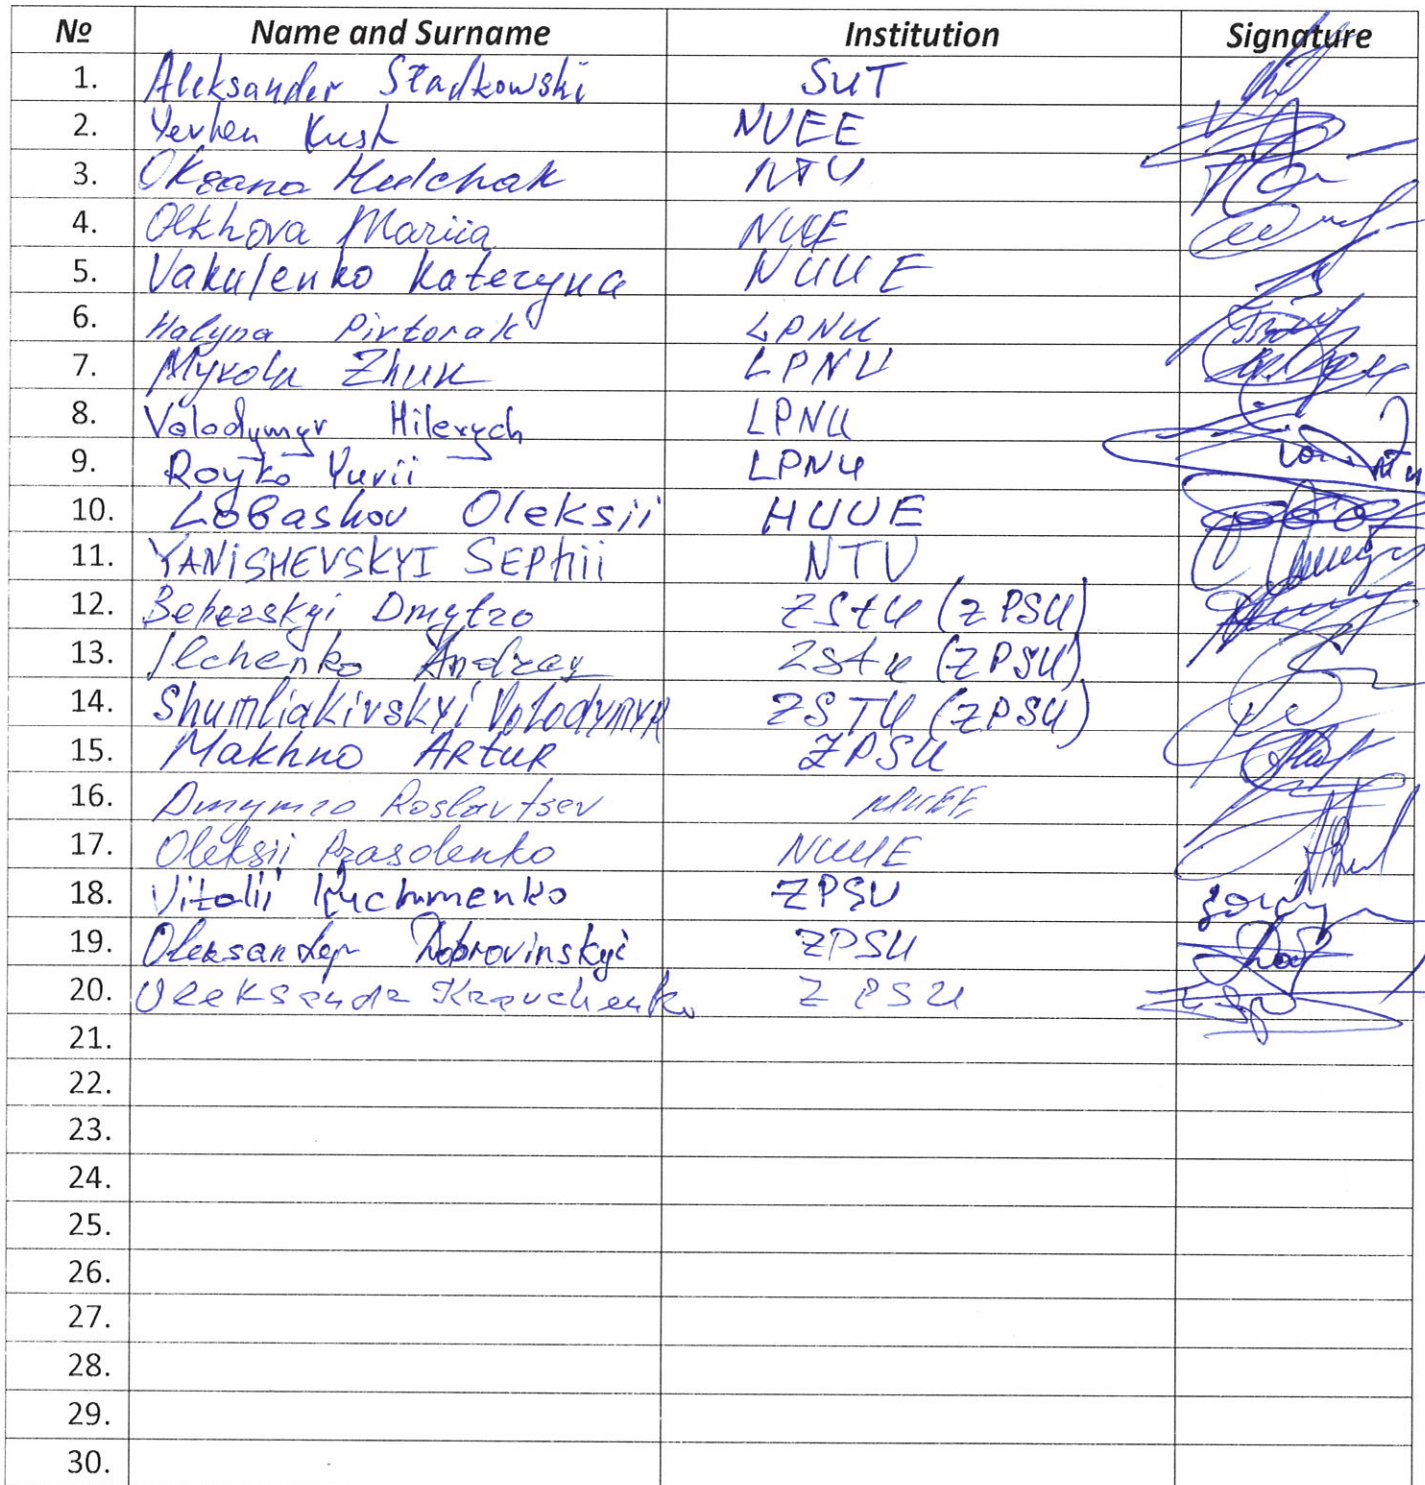 № Name and Surname Institution Signature
1. Aleksander Sładkowski SUT
2. Yevhen Kush NUEE
3. Oksana Hulchak NTU
4. Olkhova Mariia NUUE
5. Vakulenko Kateryna NUUE
6. Halyna Pivtorak LPNU
7. Mykola Zhuk LPNU
8. Volodymyr Hilevych LPNU
9. Royko Yurii LPNU
10. LOBashov Oleksii HUUE
11. YANiSHEVSKYI SEPhii NTU
12. Beherskyi Dmytro ZStU (ZPSU)
13. Ilchenko Andrey ZStU (ZPSU)
14. Shumliakivskyi Volodymyr ZSTU (ZPSU)
15. Makhno ARtuR ZPSU
16. Dmymro Roslavtsev NUEE
17. Oleksii Prasolenko NUUE
18. Vitalii Kuchmenko ZPSU
19. Oleksander Dobrovinskyi ZPSU
20. Oleksandr Kravchenko ZPSU
21.
22.
23.
24.
25.
26.
27.
28.
29.
30.